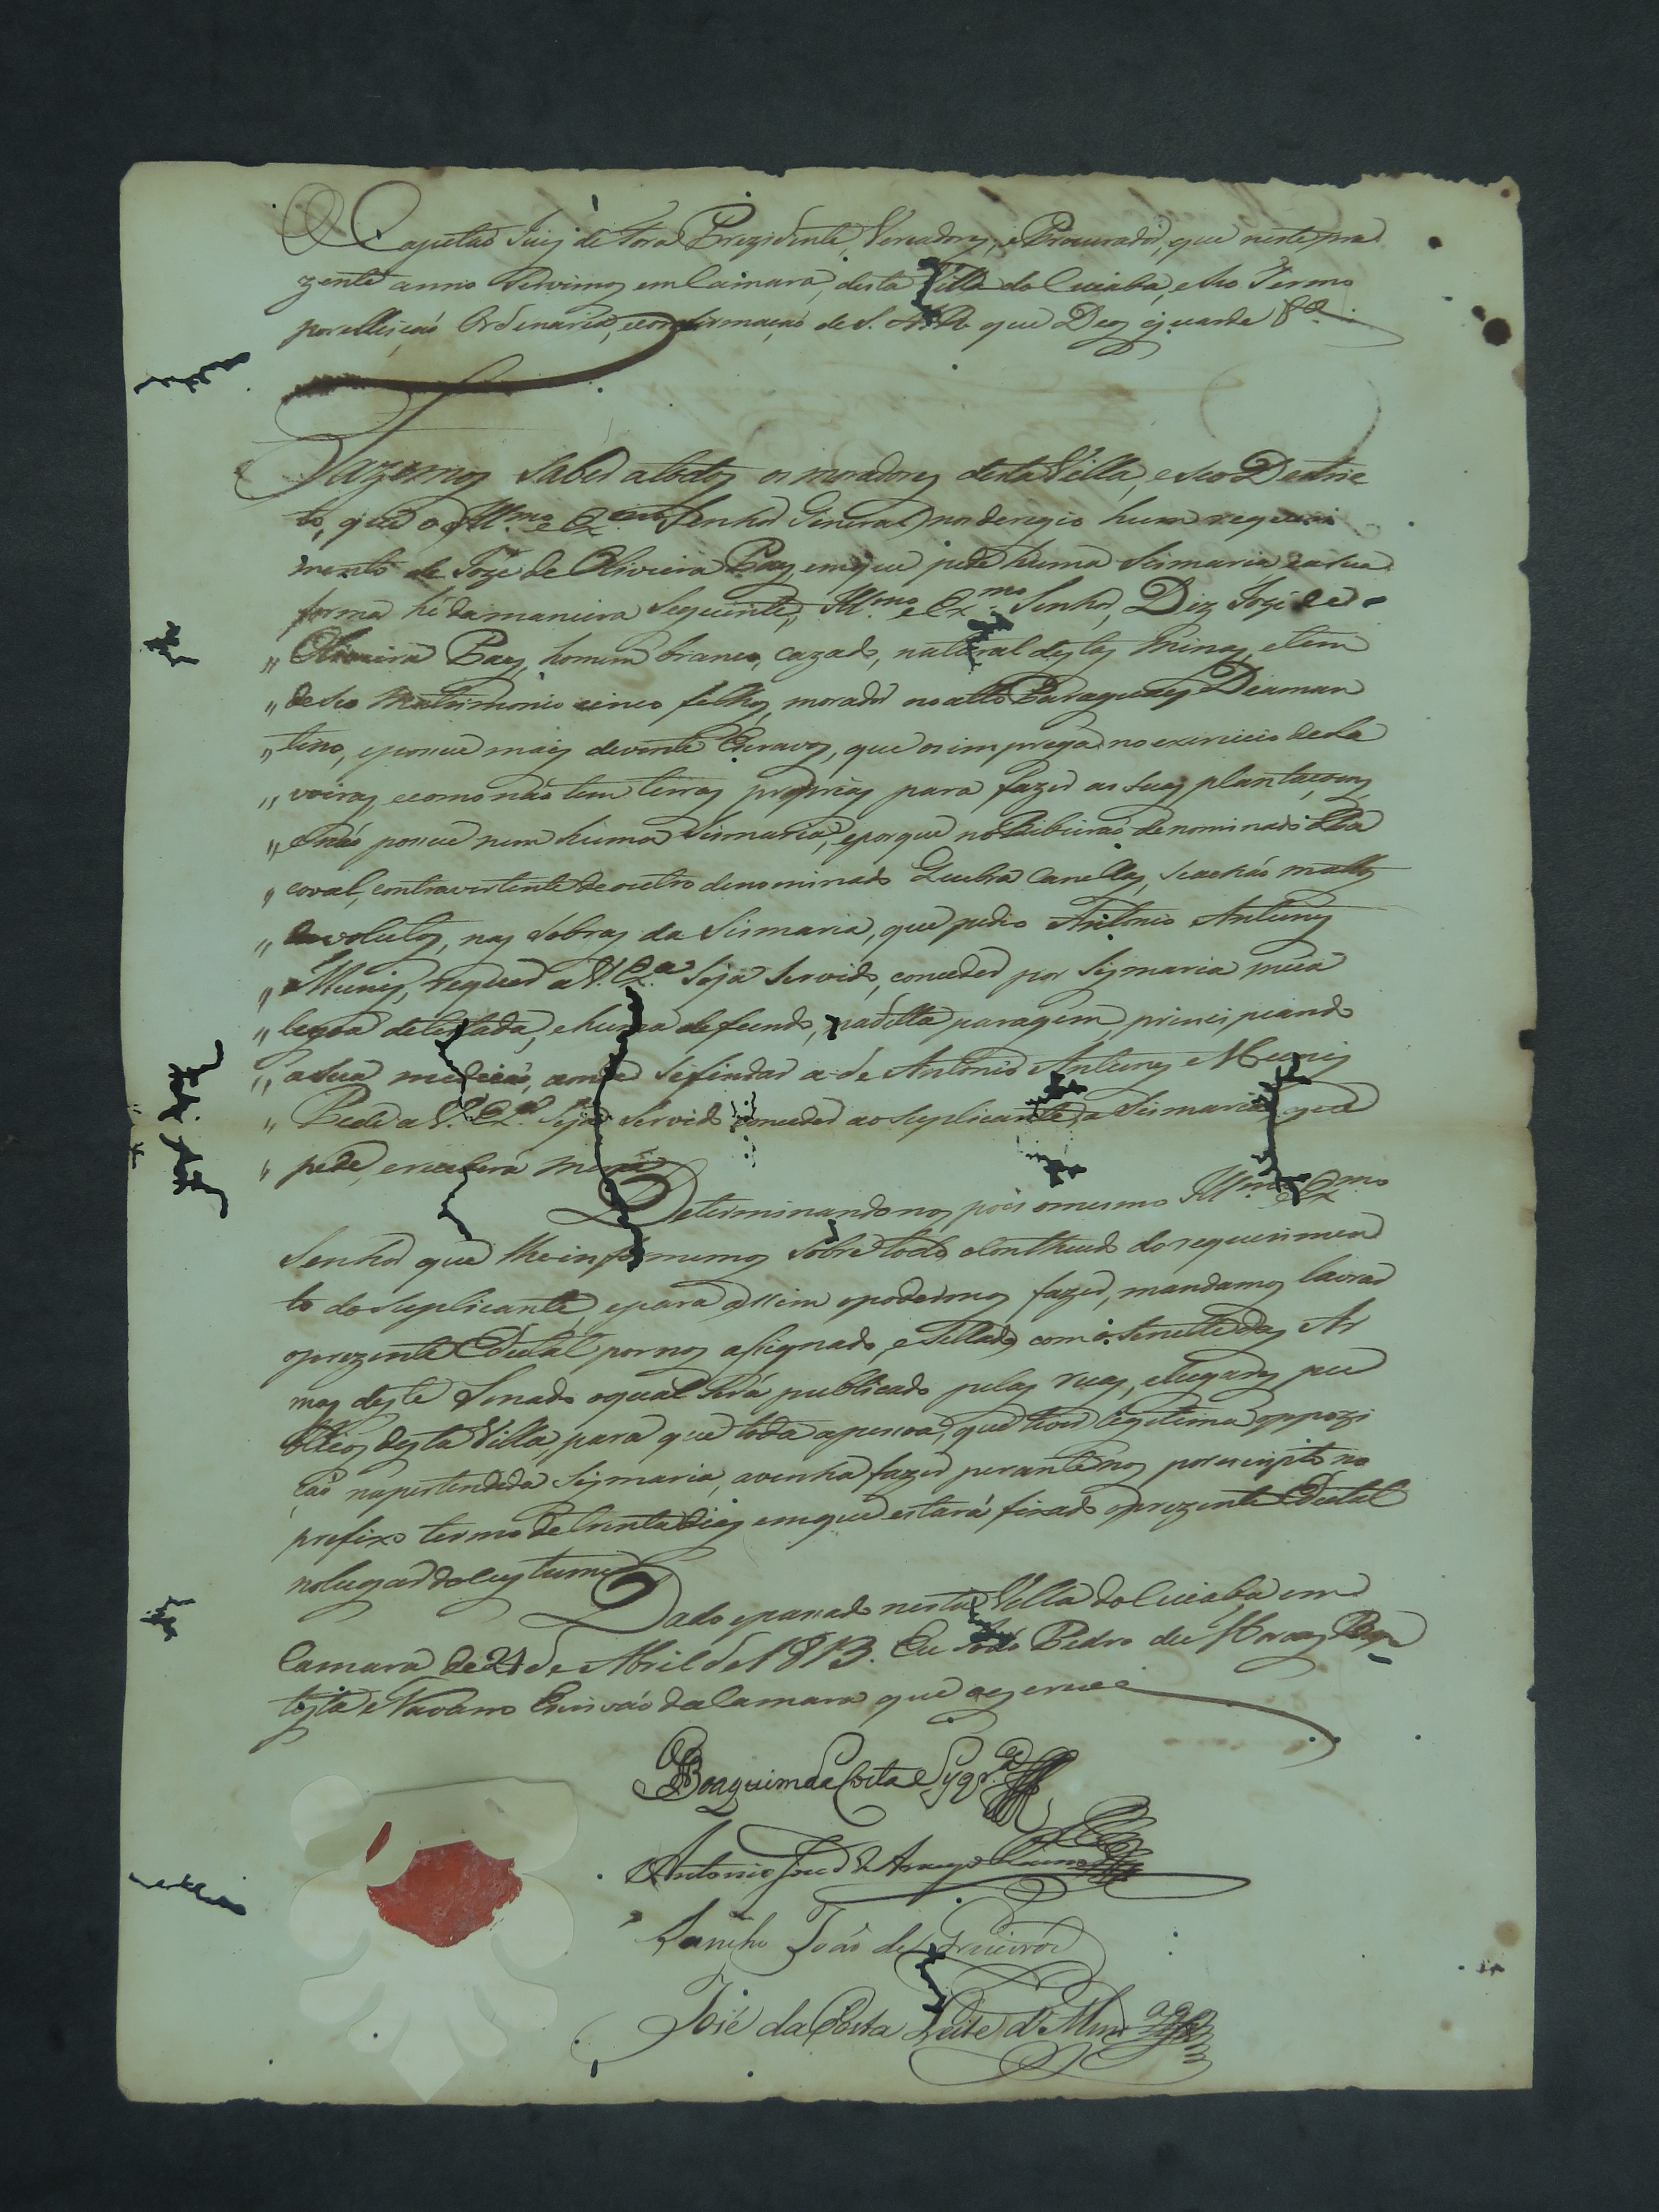 O Capitão Juiz de Fora Prezidente, Vereadores, e Procurador, que neste pre
zente anno Servimos em Camara, desta Villa do Cuiabá, e Seo Termo
por elleição Ordenaria, e confirmação de S. A. R. que Deos guarde &ª
Fazemos Saber a todos os moradores desta Villa, e Seo Destric
to, que o Illmo e Exmo Senhor General nos deregio hum requeri
mento de Joze de Oliveira Paes, em que pede huma Sismaria e a sua
forma hé da maneira Seguinte, Illmo e Exmo Senhor, Diz Jozé de
" Oliveira Paes, homem branco, cazado, natural destas Minas, e tem
" de Seo Matrimonio cinco filhos, morador no alto Paraguay Deaman
" tino, e posue mais de vinte Escravos, que os imprega no exercicio de La
" voiras, e como não tem terras proprias para fazer as Suas plantaçoens,
" e não posue nem huma Sismaria, e porque no Ribeirão denominado
" coval, contravertente de outro denominado Quebra Canellas, Se achão mattos
" devolutos, nas Sobras da Sismaria, que pedio Antonio Antunes
" Muniz, requer a V. Exª Seja Servido, conceder por Sismaria meia
" legoa de testada, e huma de fundo, na dita paragem, principiando
" a Sua medição, aonde Se findar a de Antonio Antunes Muniz
" Pede a V. Exª Seja Servido conceder ao Suplicante, a Sismaria que
" pede, e recebera merce
Determinando nos pois o mesmo Illmo e Exmo
Senhor que lhe informemos Sobre todo o Contheudo do requerimen
to do Suplicante, e para assim o podermos fazer, mandamos lavrar
o prezente Edital por nos assignado, e Sellado com o Sinette das Ar
mas deste Senado o qual Será publicado pelas ruas, e lugares pu
blicos desta Villa, para que toda a pessoa, que tiver legitima oppozi
ção na pertendida Sismaria, a venha fazer perante nos por escripto no
prefixo termo de trinta dias em que estará fixado o prezente Edital
no lugar do Custume
Dado e passado nesta Villa do Cuiabá em
Camara de 21 de Abril de 1813. Eu João Pedro de Moraes Bap
tista Navarro Escrivão da Camara que o escrevi
Joaquim da Costa e Sygra
Antonio Joze de Araujo
Sancho João de Queiroz
José da Costa Leite d'Almda